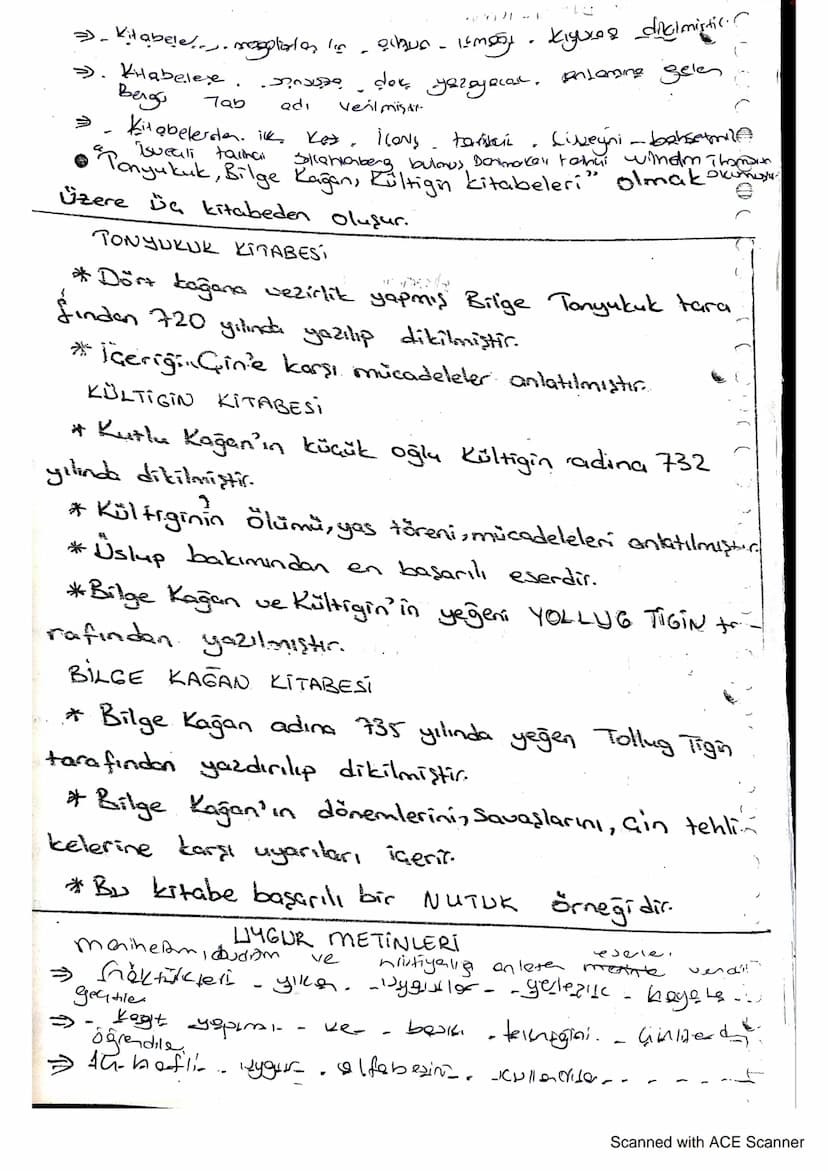 ⇒ - Kitabeler kıyısına dikilmiştir.
⇒ - Kitabelere yazayacak anlamına gelen
Bengü Taş adı verilmiştir.
⇒ - Kitabelerden ilk kez tarihçi Cüveyni bahsetmiş
İsveçli tarihçi bulmuş Danimarkalı
okumuştur.
● "Tonyukuk, Bilge Kağan, Kültigin kitabeleri" olmak
üzere üç kitabeden oluşur.
TONYUKUK KİTABESİ
* Dört kağana vezirlik yapmış Bilge Tonyukuk tara
fından 720 yılında yazılıp dikilmiştir.
* İçeriği Çin'e karşı mücadeleler anlatılmıştır.
KÜLTİGİN KİTABESİ
* Kutlu Kağan'ın küçük oğlu Kültigin adına 732
yılında dikilmiştir.
* Kültiginin ölümü, yas töreni, mücadeleleri anlatılmıştır.
* Üslup bakımından en başarılı eserdir.
* Bilge Kağan ve Kültigin'in yeğeni YOLLUG TİGİN ta-
rafından yazılmıştır.
BİLGE KAĞAN KİTABESİ
* Bilge Kağan adına 735 yılında yeğen Tollug Tigin
tarafından yazdırılıp dikilmiştir.
* Bilge Kağan'ın dönemlerini, savaşlarını, Çin tehli
kelerine karşı uyarıları içerir.
* Bu kitabe başarılı bir NUTUK örneğidir.
UYGUR METİNLERİ
ve anlatan eserler
⇒ Göktürkleri - yıkan - Uygurlar - yerleşik - hayata
geçtiler
⇒ - Kağıt yapımı - ve - baskı - tekniğini - Çinlilerden
öğrendiler
⇒ 14 harfli uygur alfabesini kullandılar
Scanned with ACE Scanner